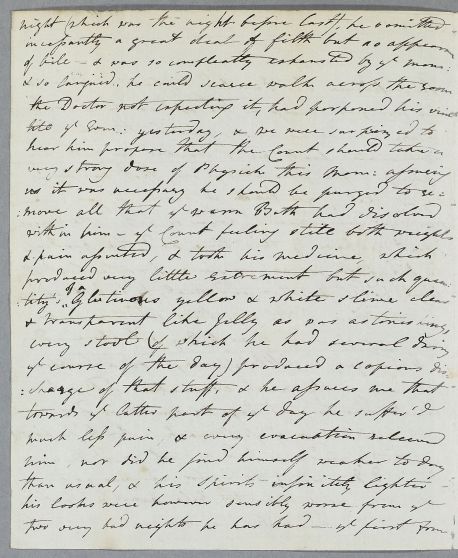 night (which was the night before last) he vomited
incessantly a great deal of filth but no appearan
of bile - & was so compleatly exhausted by ye morn:
& so languid, he could scarce walk across the room
the Doctor not expecting it, had postponed his visit
till ye Even: yesterday, & we were surprized to
hear him propose that the Count should take a
very strong dose of Physick this Morn: assuring
us it was necessary he should be purged to re=
:move all that ye warm Bath had disolved
within him - ye Count feeling still both weight
& pain assented, & took his medicine, which
produced very little excrement but such quan
:tity's of a Glutinous yellow & white slime clear
& transparent like Jelly as was astonishing
every stool (of which he had several during
ye course of the day) produced a copious dis
:charge of that stuff, & he assures me that
towards ye latter part of ye day he suffer'd
much less pain, & every evacuation relieved
him, nor did he find himself weaker to day
than usual, & his Spirits infinitely lighter -
his looks were however sensibly worse from ye
two very bad nights he has had - ye first from